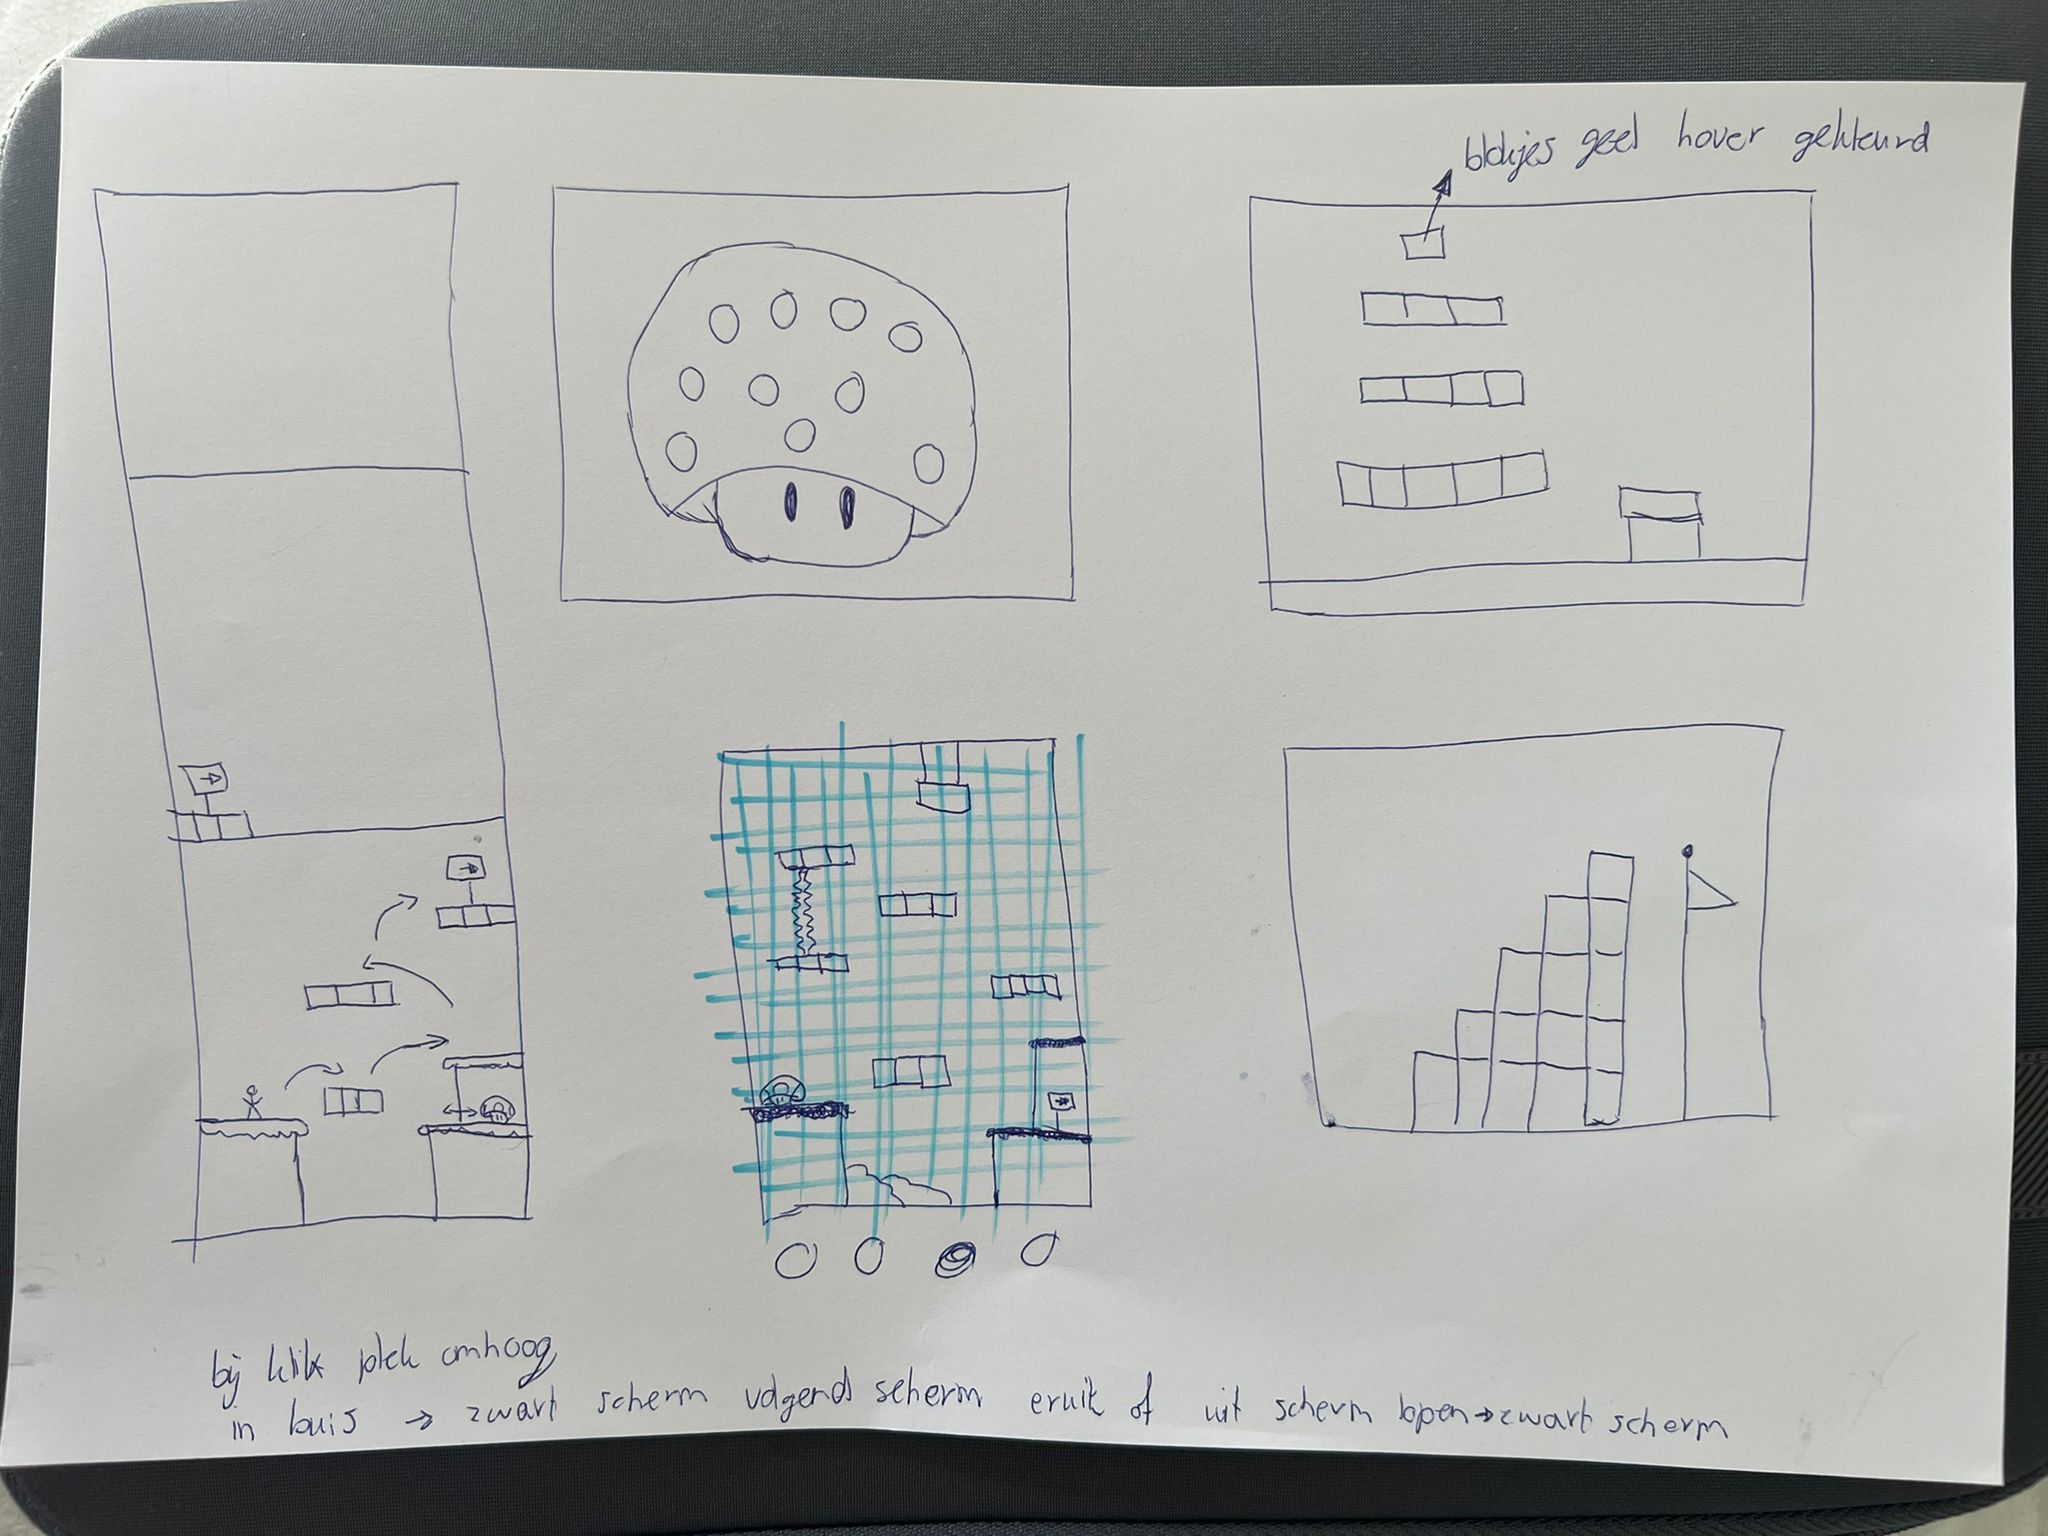 blokjes geel hover gekleurd
bij klik plek omhoog
in buis → zwart scherm volgend scherm eruit of uit scherm lopen → zwart scherm